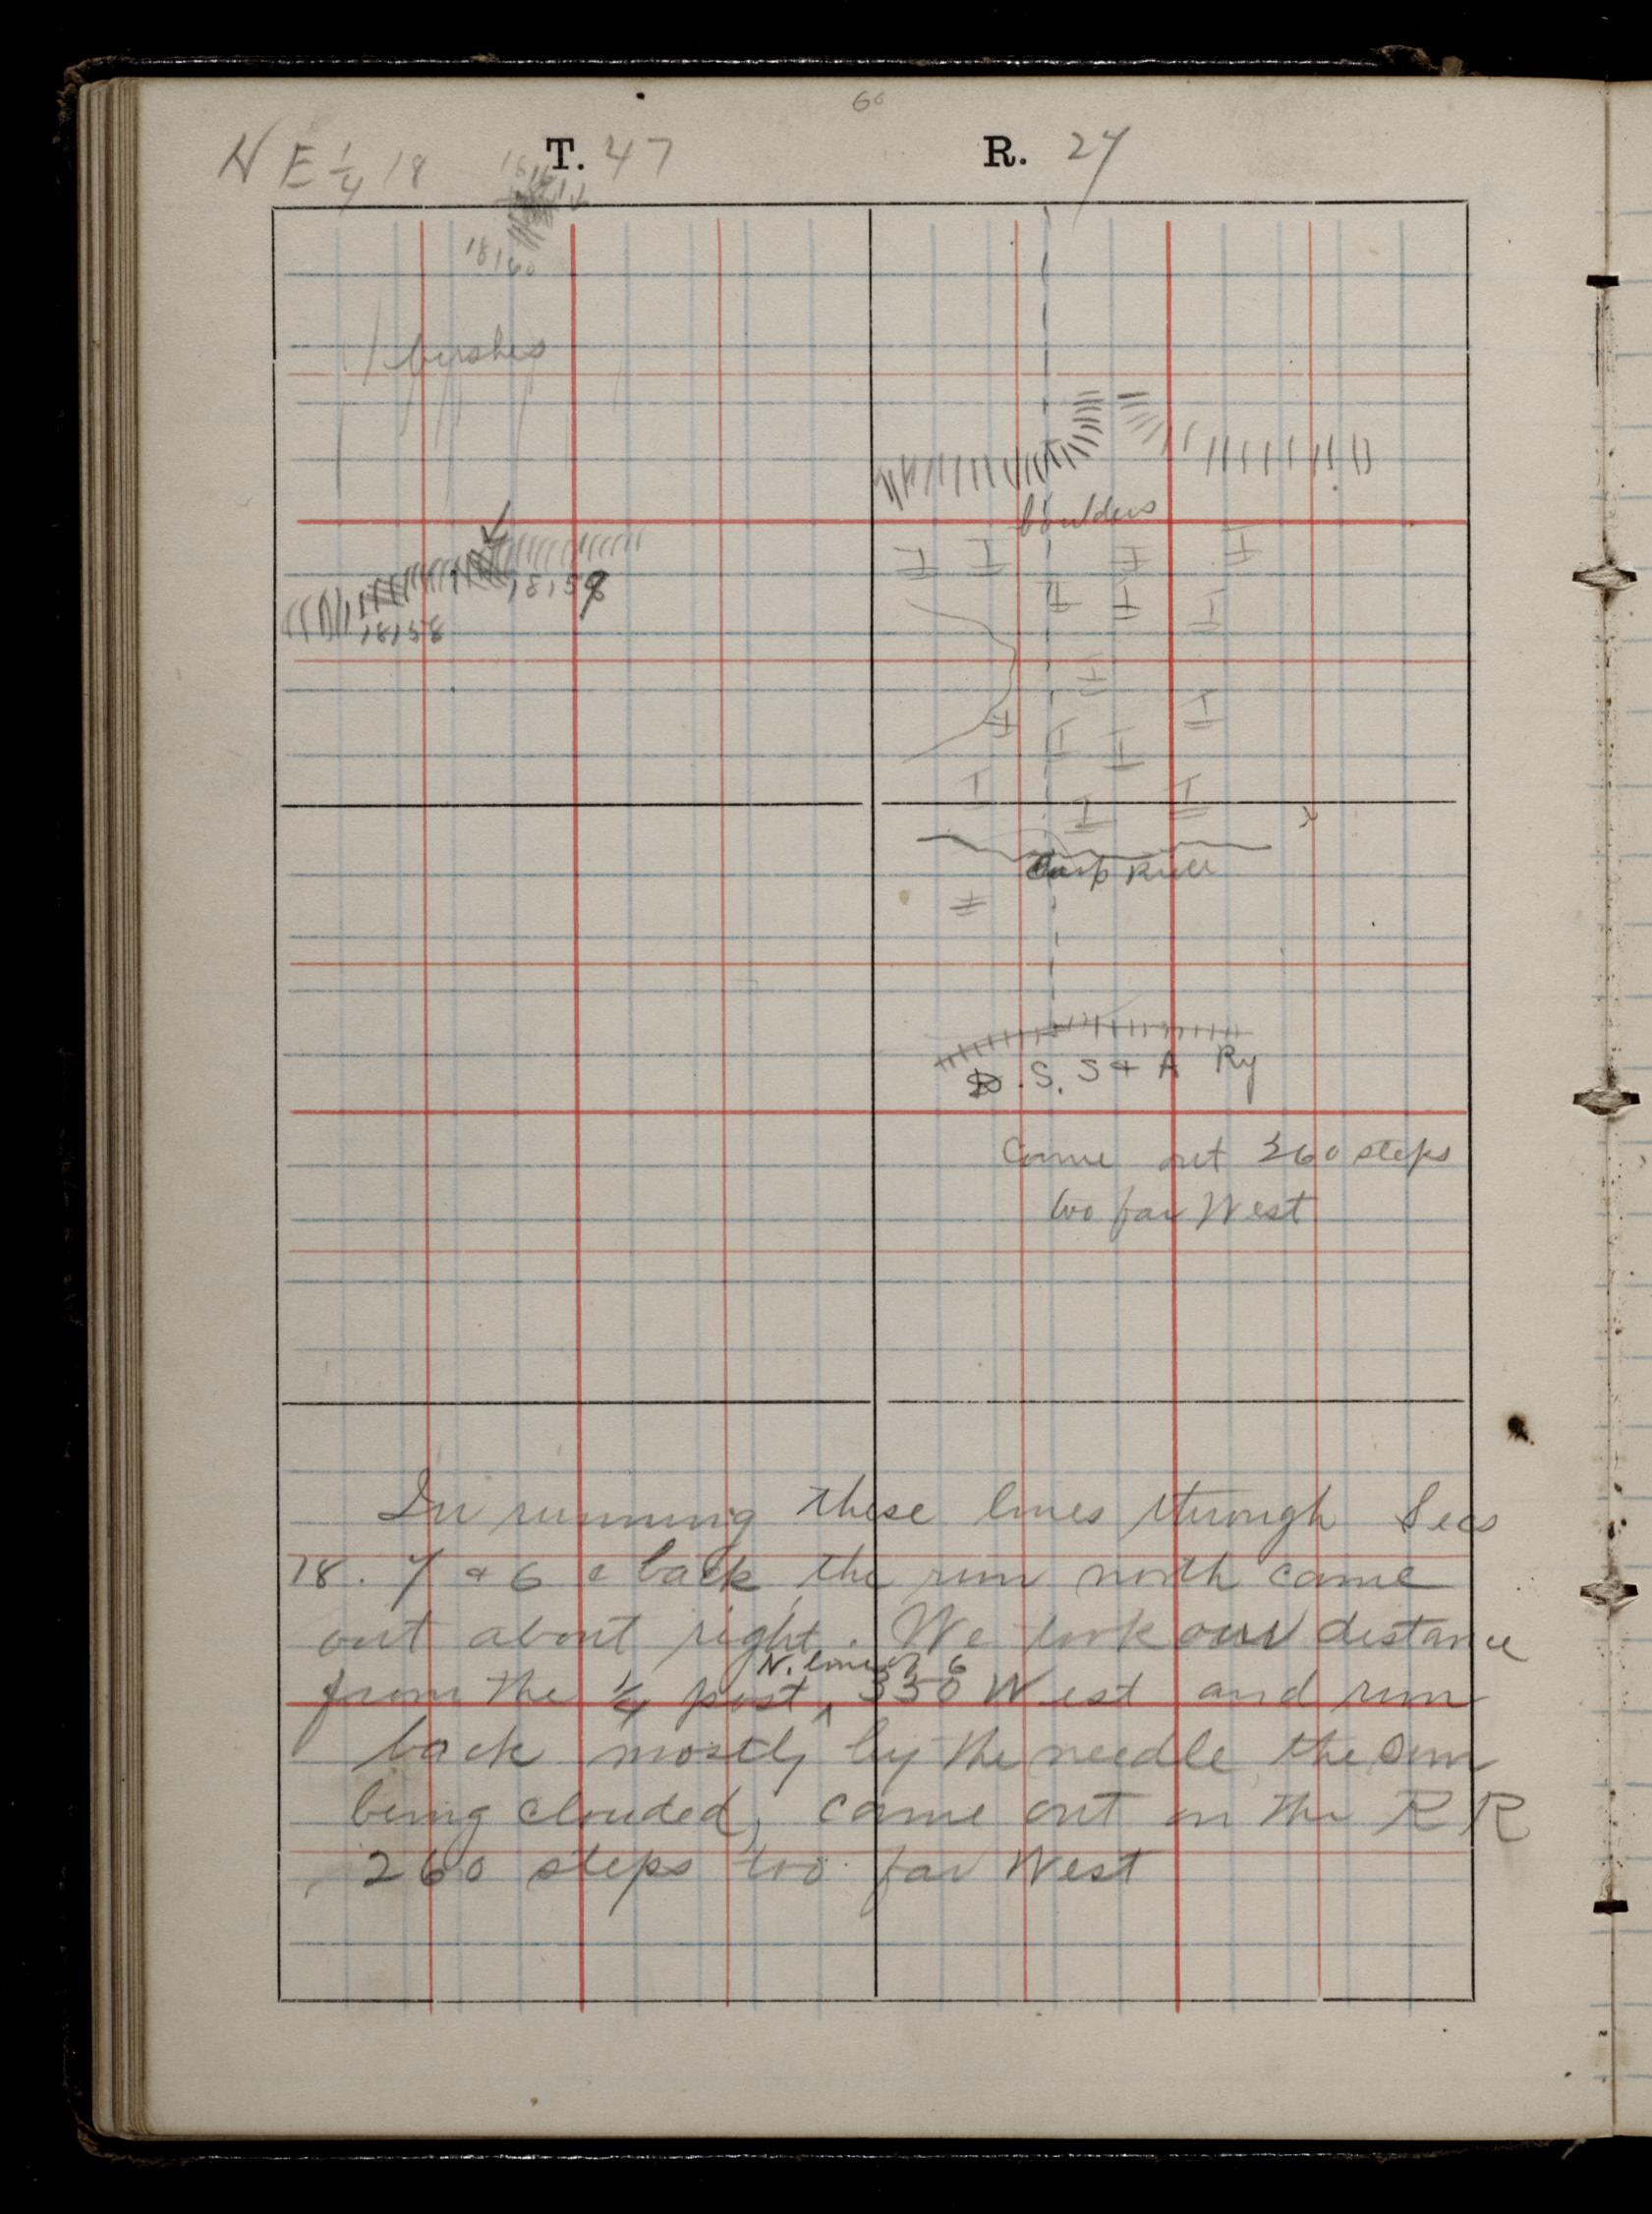 60
N E 1/4 18 T. 47 R. 27
18160
bushes
boulders
18159
18158
Carp River
D. S. S & A Ry
Came out 260 steps
too far West
In running these lines through Secs
18. 7 & 6 & back the run north came
out about right. We took our distance
N. line 6
from the 1/4 post ^ 350 West and run
back mostly by the needle, the sun
being clouded, came out on the RR
260 steps too far West